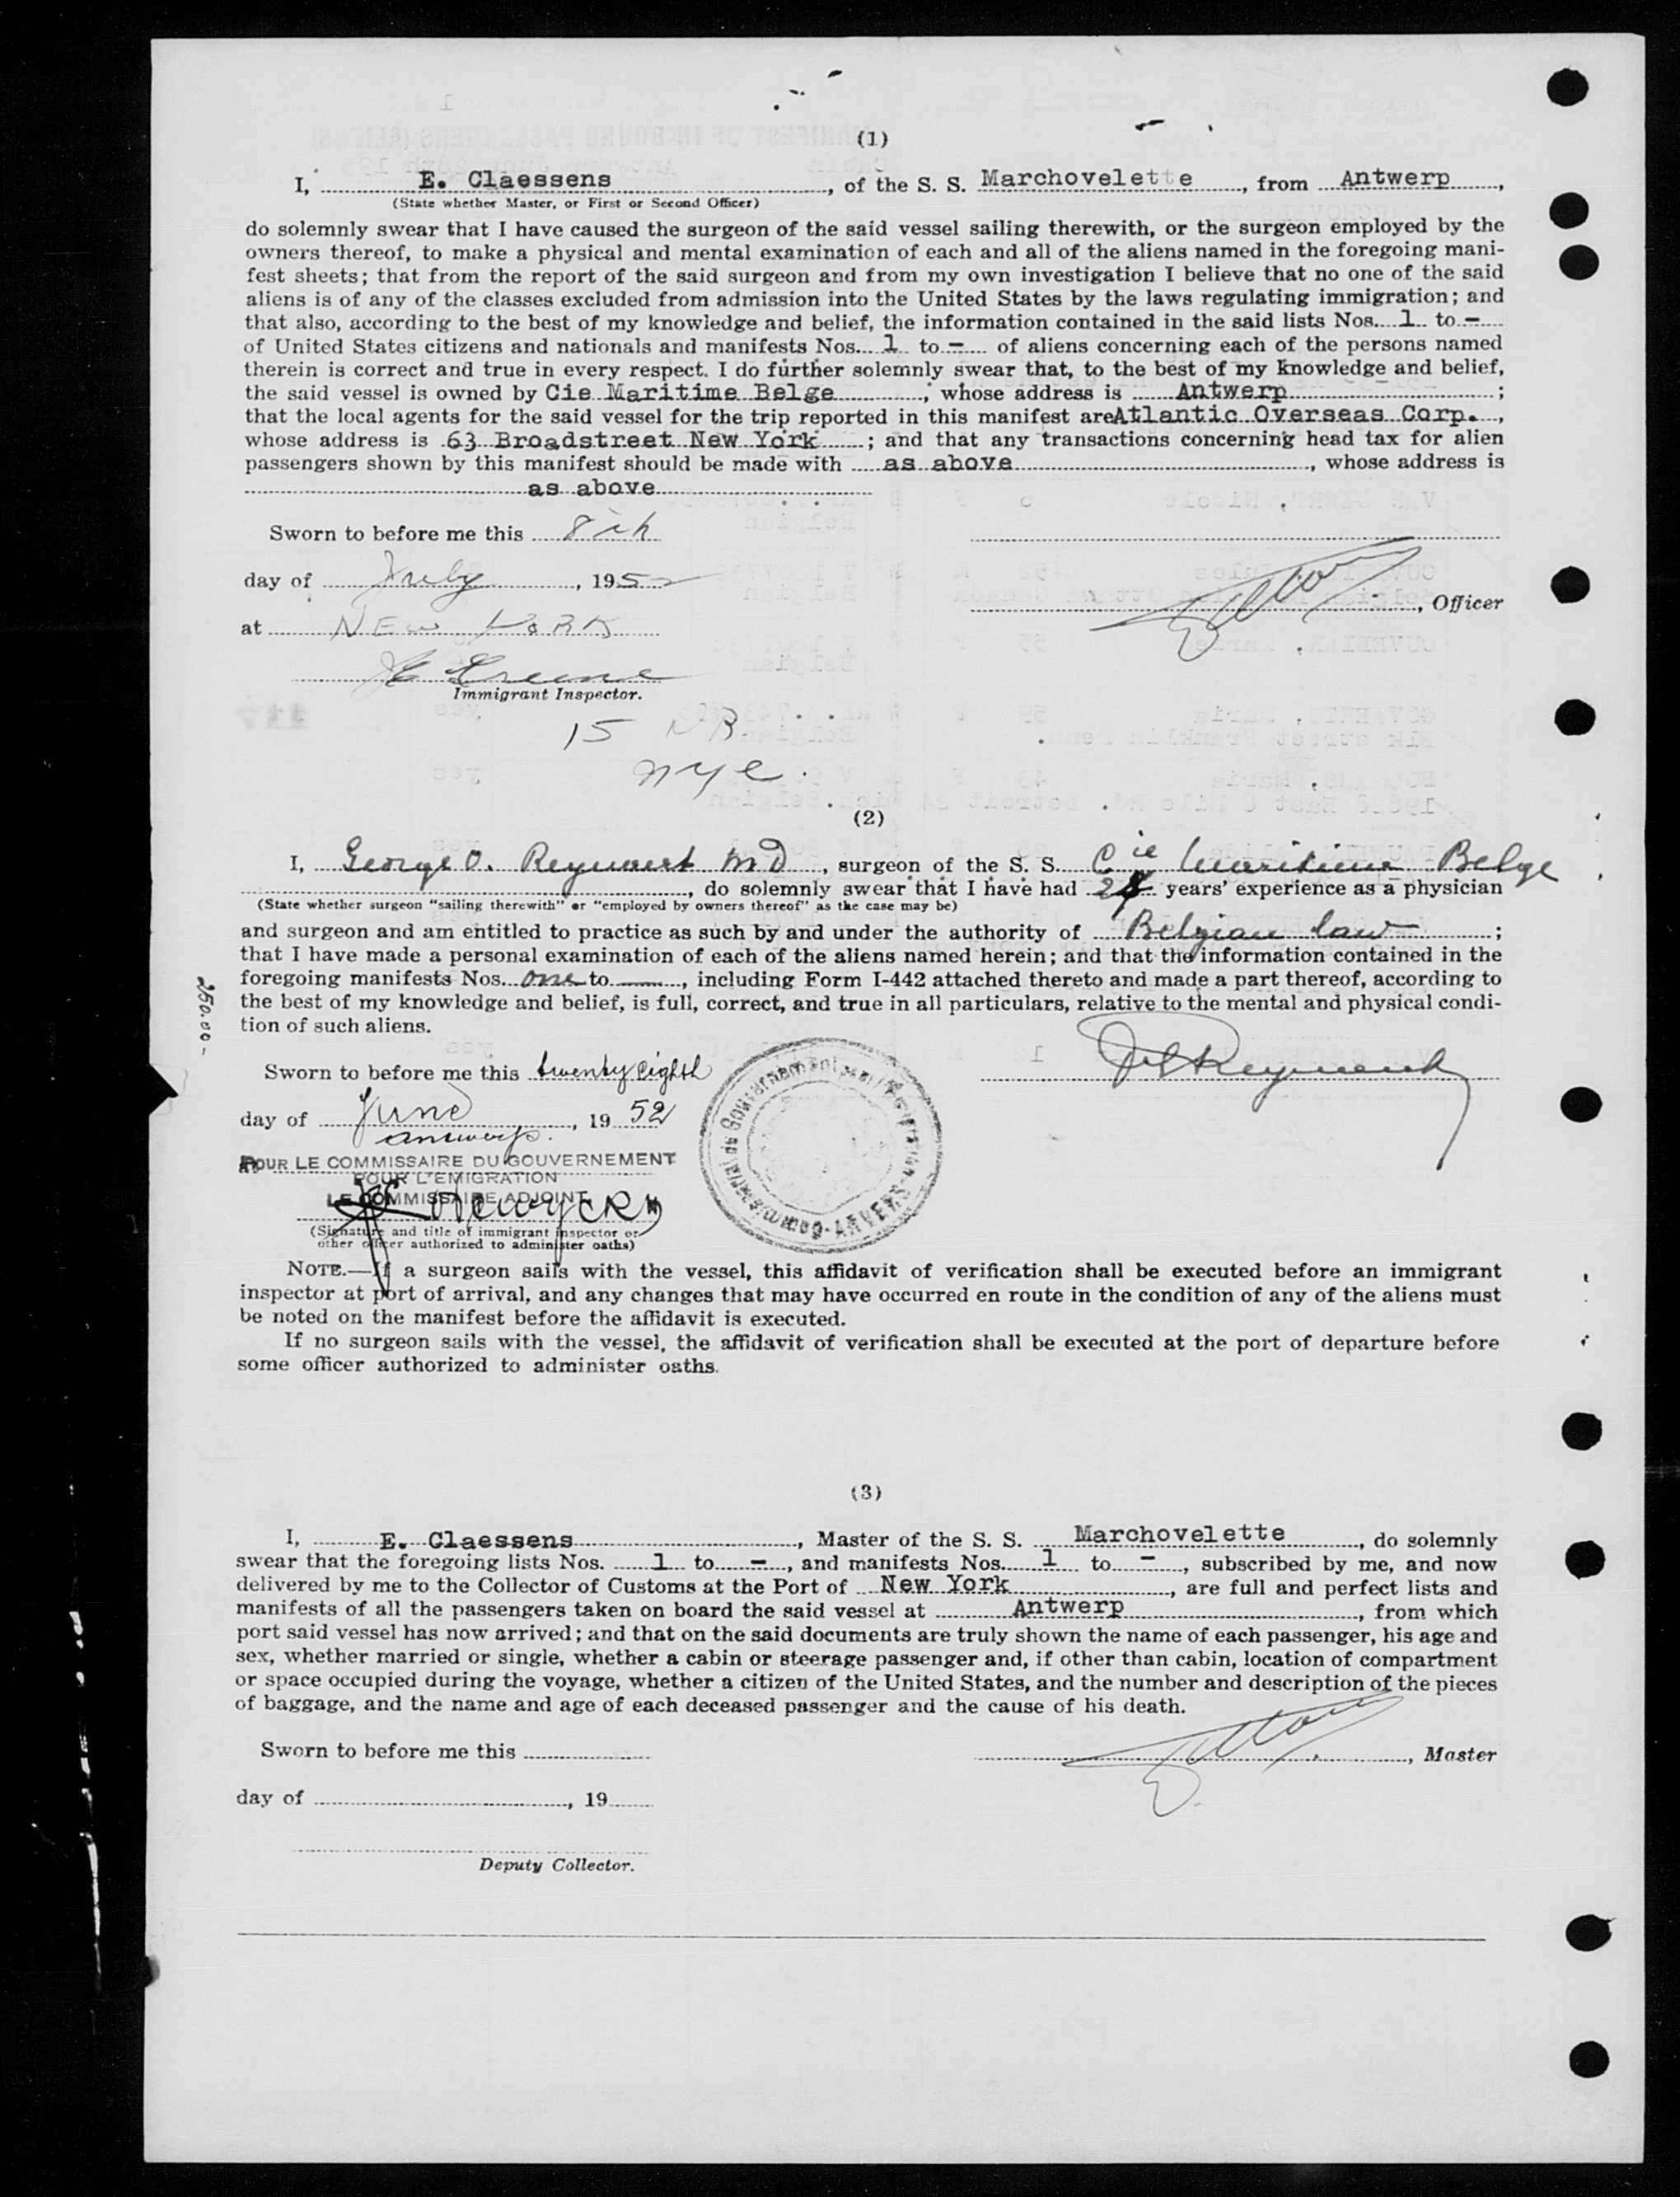 (1)
I, E. Claessens, of the S. S. Marchovelette, from Antwerp,
(State whether Master, or First or Second Officer)
do solemnly swear that I have caused the surgeon of the said vessel sailing therewith, or the surgeon employed by the
owners thereof, to make a physical and mental examination of each and all of the aliens named in the foregoing mani-
fest sheets; that from the report of the said surgeon and from my own investigation I believe that no one of the said
aliens is of any of the classes excluded from admission into the United States by the laws regulating immigration; and
that also, according to the best of my knowledge and belief, the information contained in the said lists Nos. 1 to -
of United States citizens and nationals and manifests Nos. 1 to - of aliens concerning each of the persons named
therein is correct and true in every respect. I do further solemnly swear that, to the best of my knowledge and belief,
the said vessel is owned by Cie Maritime Belge, whose address is Antwerp;
that the local agents for the said vessel for the trip reported in this manifest are Atlantic Overseas Corp.,
whose address is 63 Broadstreet New York; and that any transactions concerning head tax for alien
passengers shown by this manifest should be made with as above, whose address is
as above
Sworn to before me this 8th
day of July, 1952
at NEW YORK
, Officer
Immigrant Inspector.
15
nye.
(2)
I, George O. M D, surgeon of the S. S. Cie Maritime Belge
, do solemnly swear that I have had years' experience as a physician
(State whether surgeon "sailing therewith" or "employed by owners thereof" as the case may be)
and surgeon and am entitled to practice as such by and under the authority of Belgian law;
that I have made a personal examination of each of the aliens named herein; and that the information contained in the
foregoing manifests Nos. one to —, including Form I-442 attached thereto and made a part thereof, according to
the best of my knowledge and belief, is full, correct, and true in all particulars, relative to the mental and physical condi-
tion of such aliens.
250.00-
Sworn to before me this twenty eighth
day of June, 1952
Antwerp.
POUR LE COMMISSAIRE DU GOUVERNEMENT
POUR L'EMIGRATION
LE COMMISSAIRE ADJOINT
(Signature and title of immigrant inspector or
other officer authorized to administer oaths)
NOTE.—If a surgeon sails with the vessel, this affidavit of verification shall be executed before an immigrant
inspector at port of arrival, and any changes that may have occurred en route in the condition of any of the aliens must
be noted on the manifest before the affidavit is executed.
If no surgeon sails with the vessel, the affidavit of verification shall be executed at the port of departure before
some officer authorized to administer oaths.
(3)
I, E. Claessens, Master of the S. S. Marchovelette, do solemnly
swear that the foregoing lists Nos. 1 to -, and manifests Nos. 1 to -, subscribed by me, and now
delivered by me to the Collector of Customs at the Port of New York, are full and perfect lists and
manifests of all the passengers taken on board the said vessel at Antwerp, from which
port said vessel has now arrived; and that on the said documents are truly shown the name of each passenger, his age and
sex, whether married or single, whether a cabin or steerage passenger and, if other than cabin, location of compartment
or space occupied during the voyage, whether a citizen of the United States, and the number and description of the pieces
of baggage, and the name and age of each deceased passenger and the cause of his death.
Sworn to before me this
, Master
day of , 19
Deputy Collector.